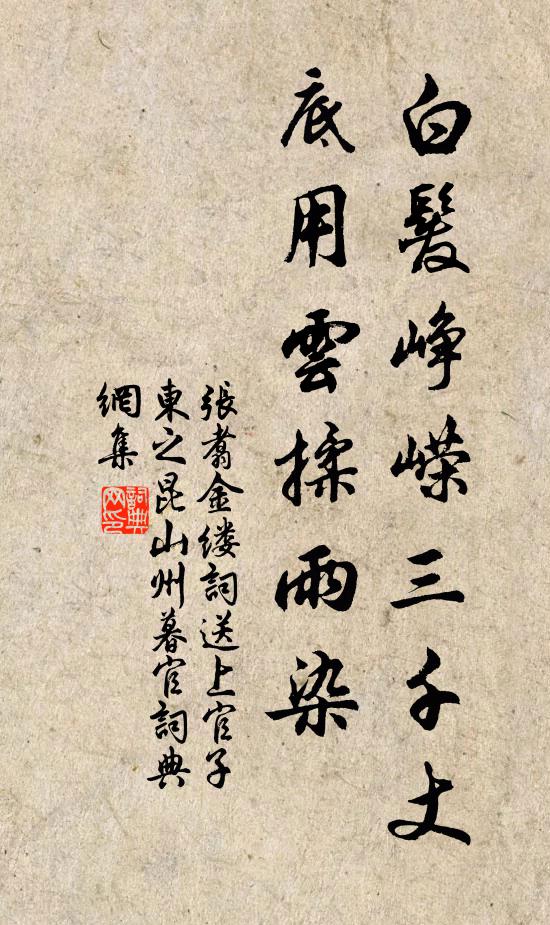 白髮峥嵘三千丈
底用雲揉雨染
張翥金缕詞送上官子
東之昆山州暮官詞典
網集
詞典
网印